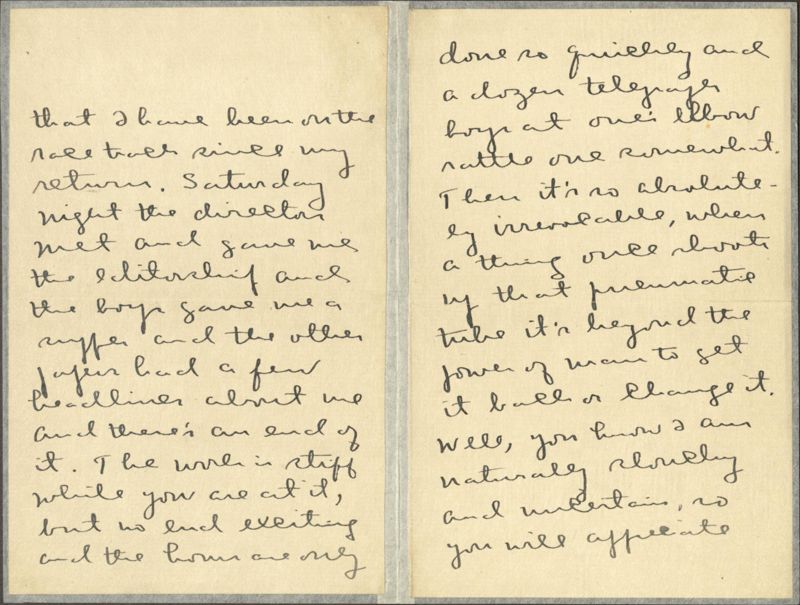 that I have been on the
race track since my
return. Saturday
night the directors
met and gave me
the editorship and
the boys gave me a
supper and the other
papers had a few
headlines about me
and there's an end of
it. The work is stiff
while you are at it,
but no end exciting
and the hours are only
done so quickly and
a dozen telegraph
boys at one's elbow
rattle one somewhat.
Then it's so absolute-
ly irrevocable, when
a thing once shoots
up that pneumatic
tube it's beyond the
power of man to get
it back or change it.
Well, you know I am
naturally slouchy
and uncertain, so
you will appreciate